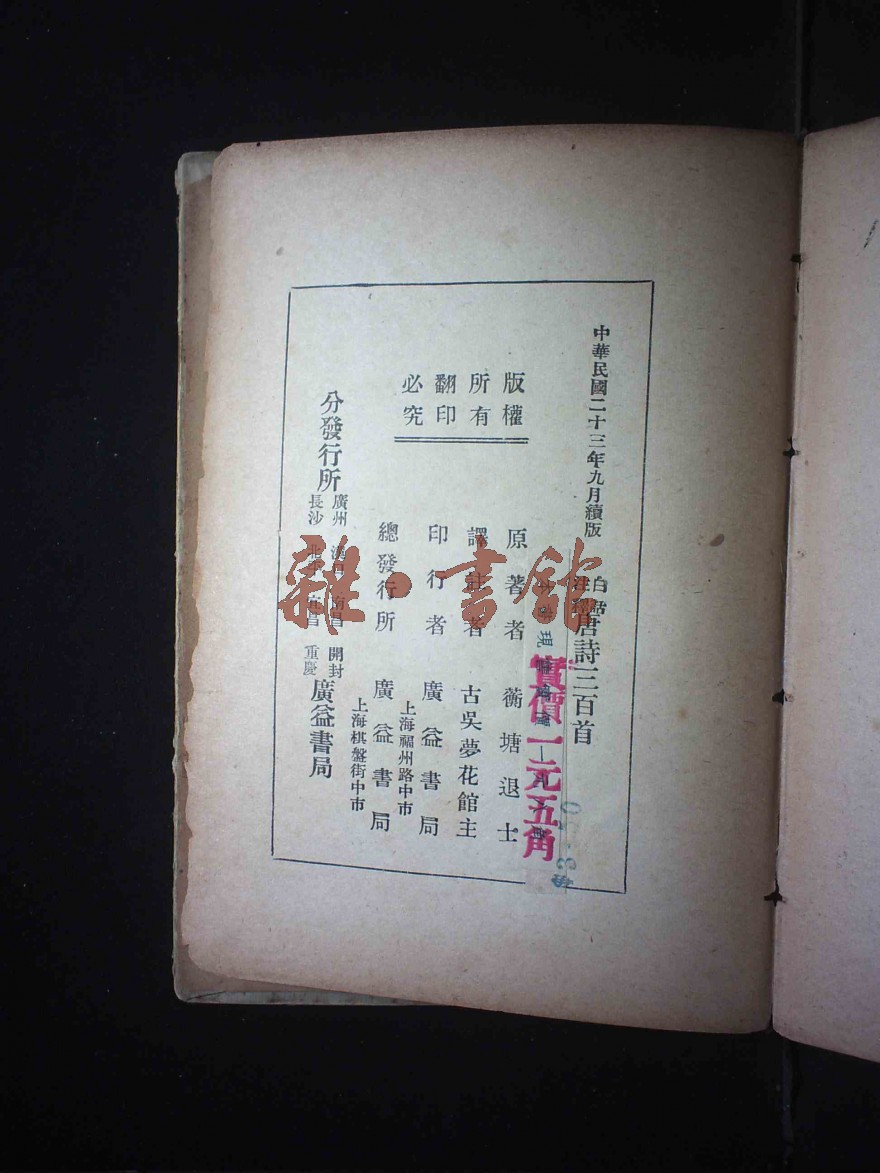 中華民國二十三年九月續版
白話註釋唐詩三百首
實價一元五角
現
版權
所有
翻印
必究
原著者 蘅塘退士
譯註者 古吳夢花館主
印行者 廣益書局
上海福州路中市
總發行所 廣益書局
上海棋盤街中市
分發行所
廣州 漢口 南昌 開封
長沙 北平 重慶
廣益書局
雜·書館